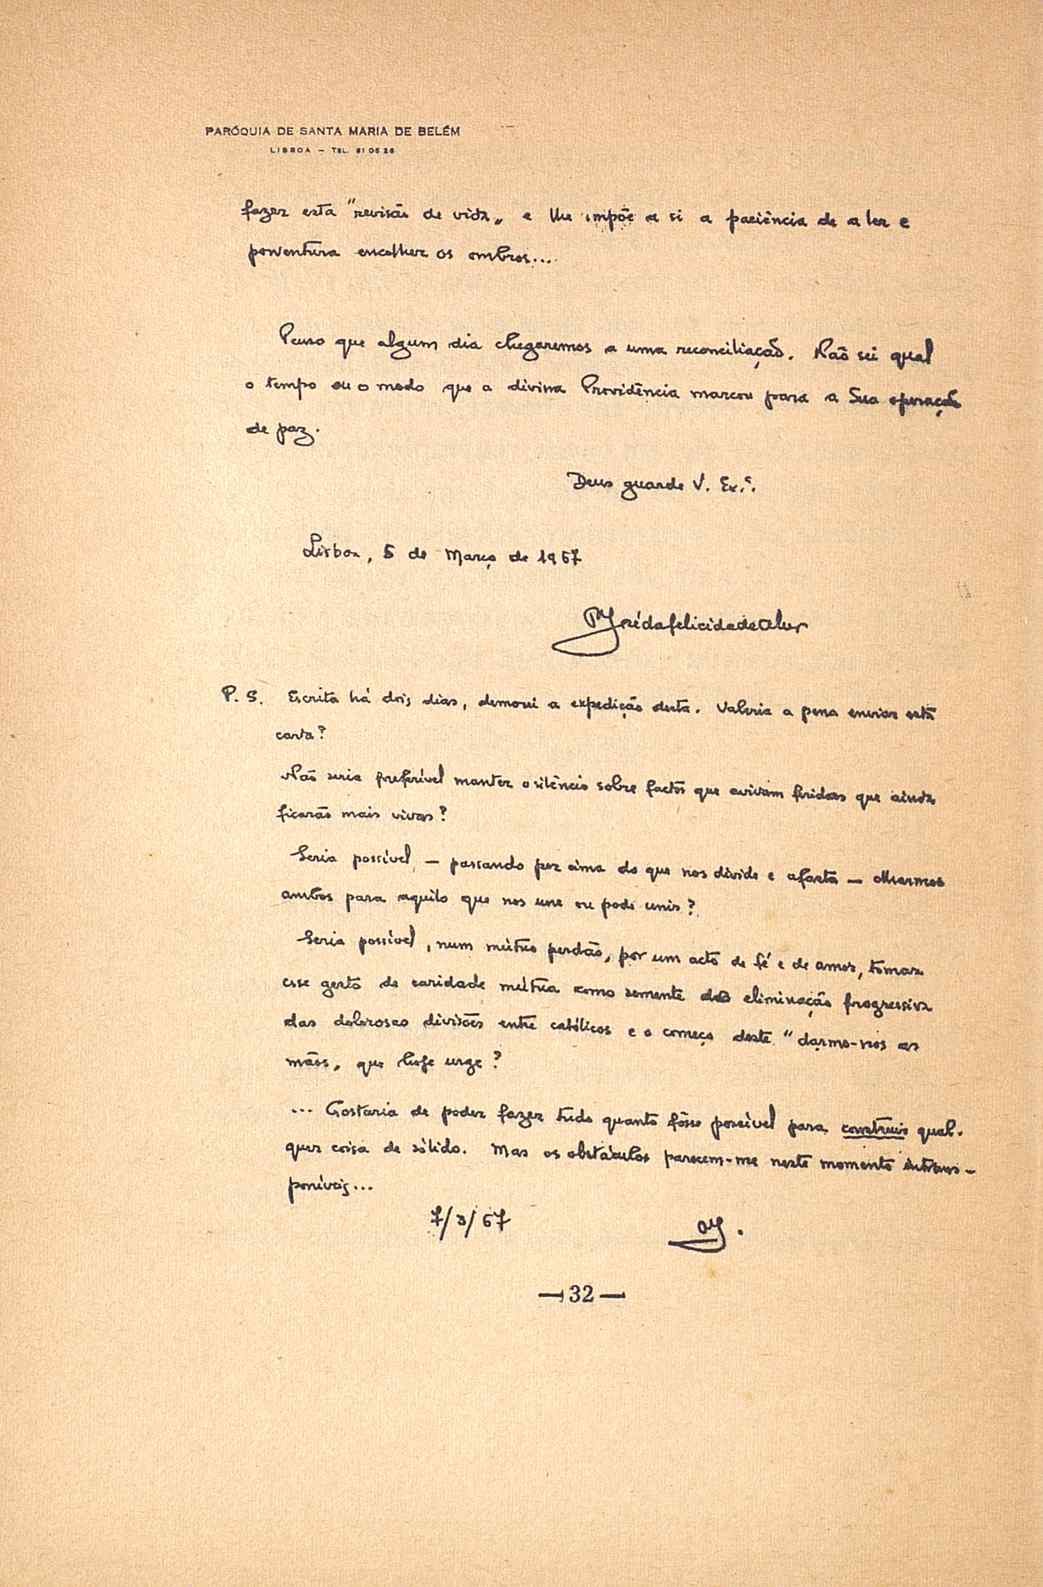 PARÓQUIA DE SANTA MARIA DE BELÉM
LISBOA — TEL. 61 06 26
fazer esta "revisão de vida„ e lhe impõe a si a paciência de a ler e
porventura encolher os ombros...
Penso que algum dia chegaremos a uma reconciliação. Não sei qual
o tempo ou o modo que a divina Providência marcou para a Sua operação
de paz.
Deus guarde V. Ex.ª.
Lisboa, 5 de Março de 1967
P. José da felicidade Alves
P. S. Escrita há dois dias, demorei a expedição desta. Valeria a pena enviar esta
carta?
Não seria preferível manter o silêncio sobre factos que avivam feridas que ainda
ficarão mais vivas?
Seria possível — passando por cima do que nos divide e afasta — olharmos
ambos para aquilo que nos une ou pode unir?
Seria possível, num mútuo perdão, por um acto de fé e de amor, tomar
esse gesto de caridade mútua como semente da eliminação progressiva
das dolorosas divisões entre católicos e o começo deste "darmo-nos as
mãos„ que hoje urge?
... Gostaria de poder fazer tudo quanto fôsse possível para construir qual-
quer coisa de sólido. Mas os obstáculos parecem-me neste momento intrans-
poníveis...
7/3/67
—32—